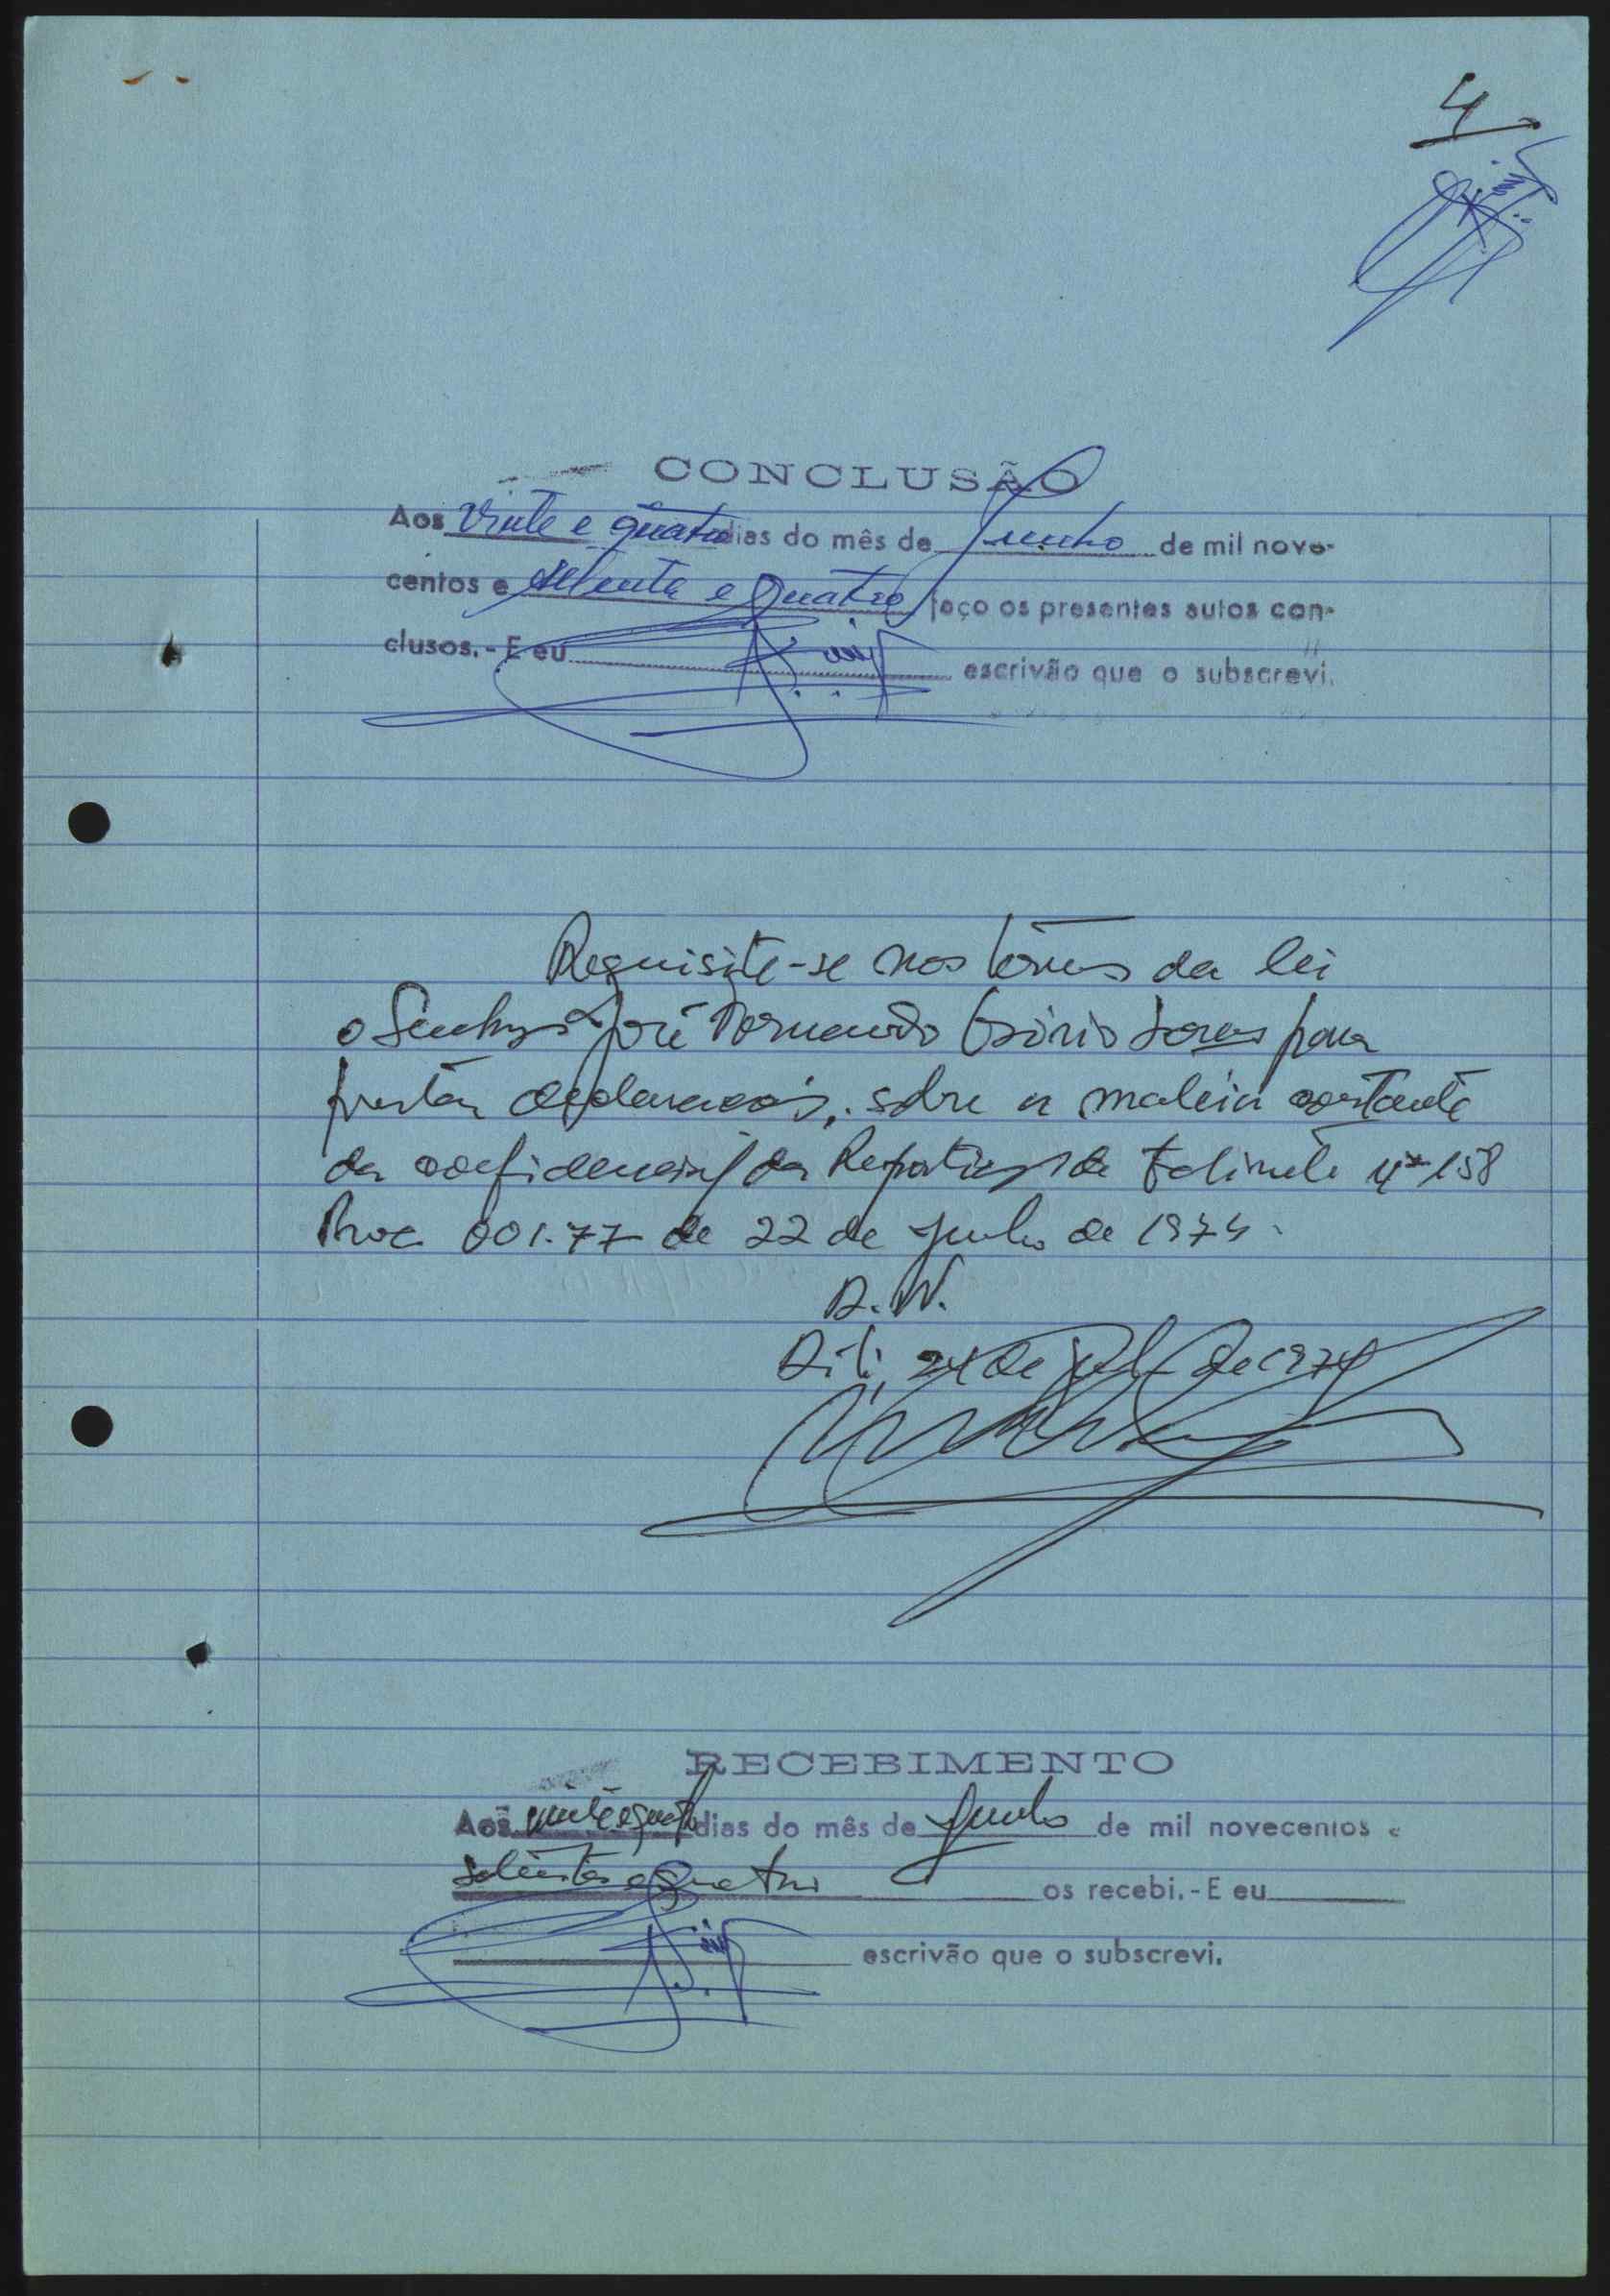 4
CONCLUSÃO
Aos vinte e quatro dias do mês de Junho de mil nove-
centos e setenta e quatro faço os presentes autos con-
clusos. - E eu escrivão que o subscrevi.
Requisite-se nos termos da lei
o Senhor José Fernando Osório Soares para
prestar declarações, sobre a matéria constante
da confidencial da Repartição de Gabinete nº 158
Proc. 001.77 de 22 de Junho de 1974.
D. N.
Dili, 24 de de 1974
RECEBIMENTO
Aos vinte e quatro dias do mês de Junho de mil novecentos e
setenta e quatro os recebi. - E eu
escrivão que o subscrevi.